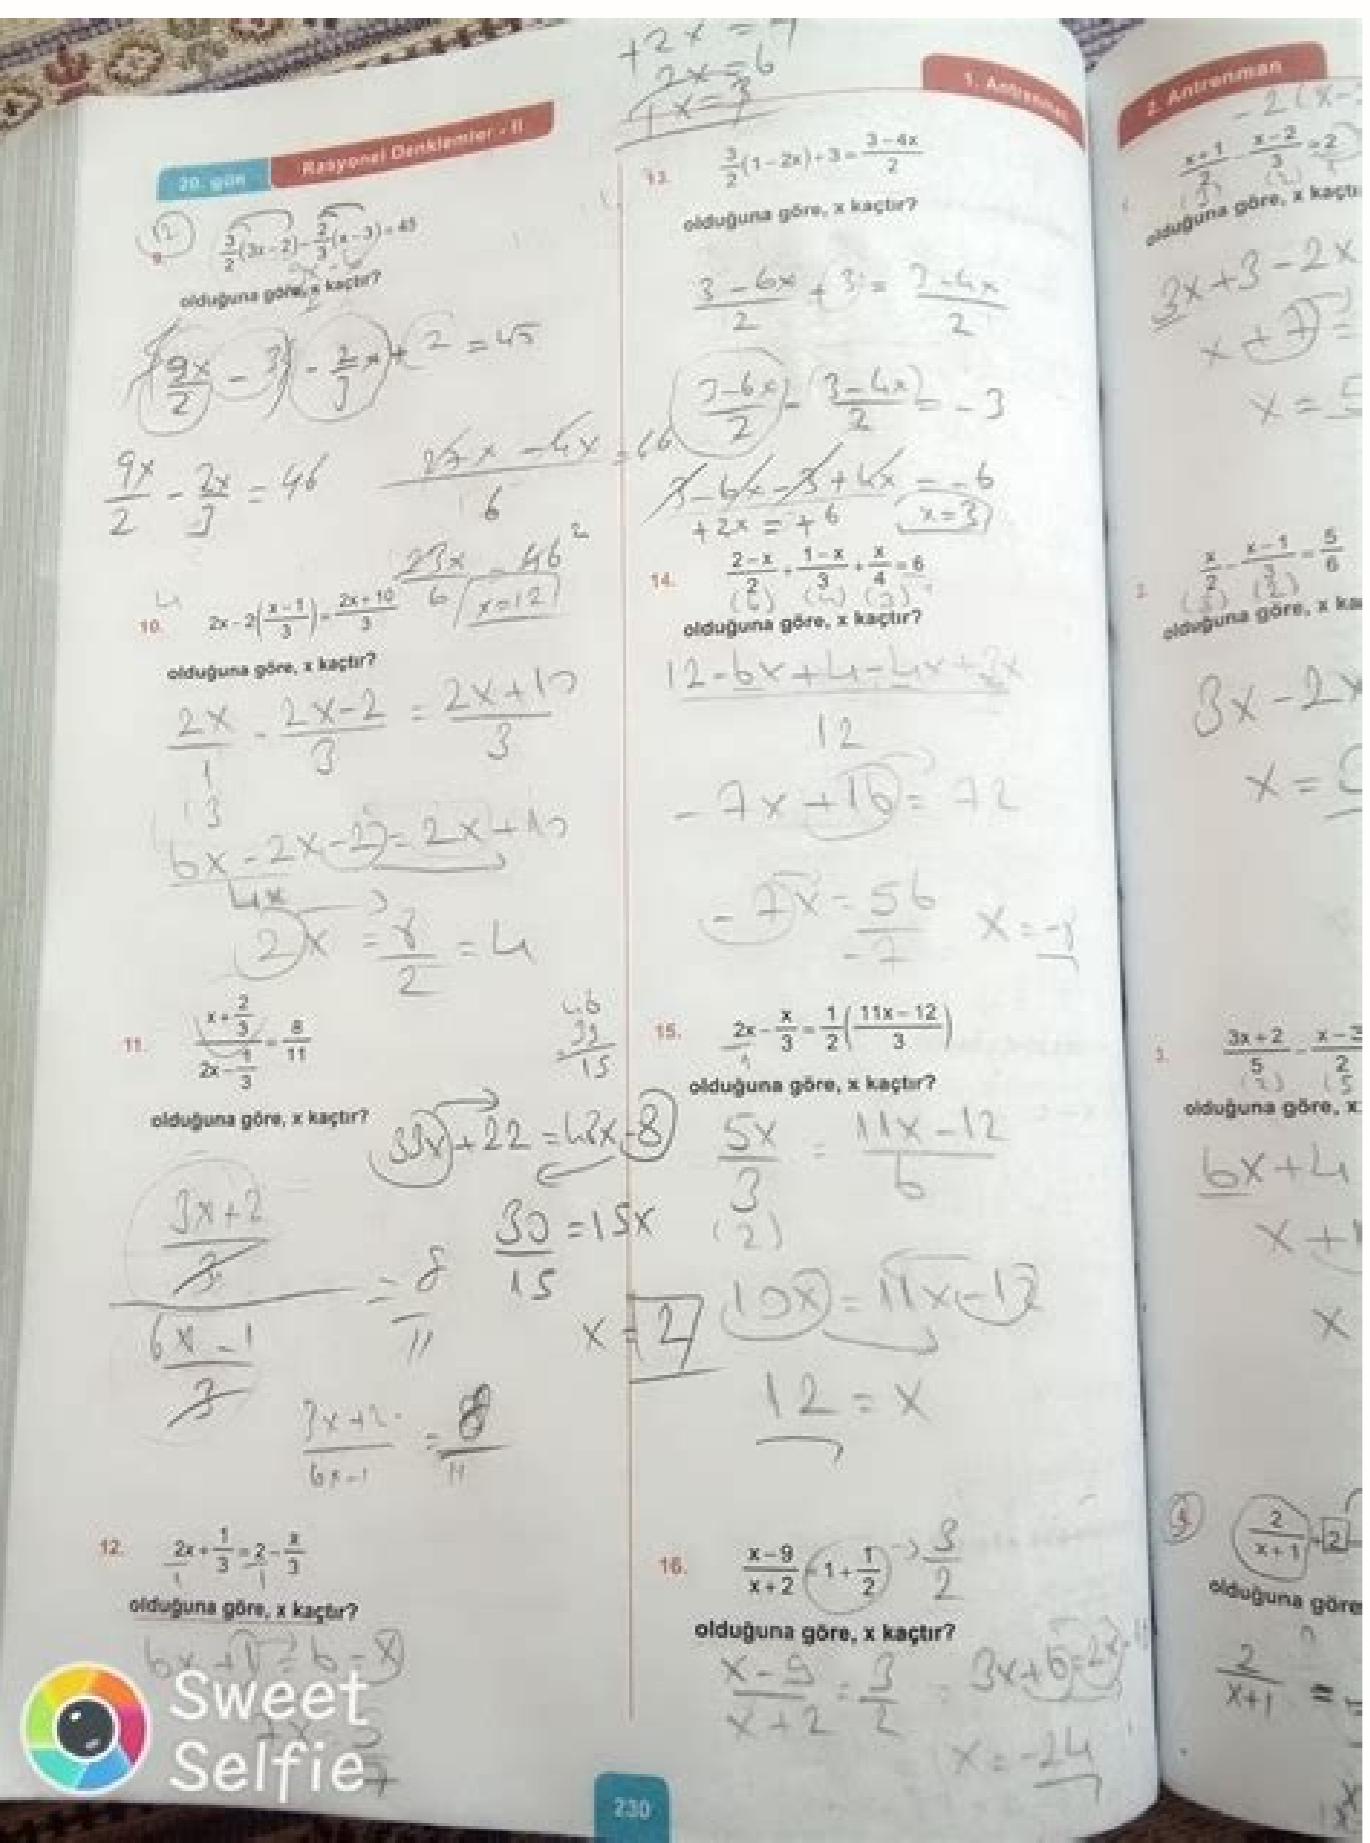 +2x = 
2x = 6
x = 3
20. gün
Rasyonel Denklemler - II
1. Antrenman
2. Antrenman
12
9. 3/2(3x-2)-2/3(x-3)=45
olduğuna göre, x kaçtır?
(9x/2 - 3) - 2/3x + 2 = 45
9x/2 - 2x/3 = 46
27x - 4x/6 = 46
23x/6 = 46 2
x=12
10. 2x-2((x-1)/3)=(2x+10)/3
olduğuna göre, x kaçtır?
2x/1 - 2x-2/3 = 2x+10/3
6x - 2x - 2 = 2x + 10
4x
2x = 8/2 = 4
11. (x+2/3)/(2x-1/3)=8/11
olduğuna göre, x kaçtır?
33x + 22 = 48x - 8
3x+2/3
6x-1/3
= 8/11
30/15 = 15x
x = 2
3x+2/6x-1 = 8/11
12. 2x+1/3=2-x/3
olduğuna göre, x kaçtır?
6x + 1 = 6 - x
Sweet
Selfie
13. 3/2(1-2x)+3=(3-4x)/2
olduğuna göre, x kaçtır?
3-6x/2 + 3 = 3-4x/2
3-6x/2 - (3-4x)/2 = -3
3-6x-3+4x = -6
+2x = +6
x=3
14. (2-x)/2+(1-x)/3+x/4=6
(6) (4) (3)
olduğuna göre, x kaçtır?
12-6x+4-4x+3x
12
-7x+16 = 72
-7x = 56/-7
x = -8
15. 2x-x/3=1/2((11x-12)/3)
olduğuna göre, x kaçtır?
5x/3 = 11x-12/6
(2)
10x = 11x-12
12 = x
16. (x-9)/(x+2)=1+1/2 → 3/2
olduğuna göre, x kaçtır?
x-9/x+2 = 3/2 = 3x+6=2x-
x = -24
230
-2(x-
(x+1)/2-(x-2)/3=2
olduğuna göre, x kaçtı
3x+3-2x
x+7 =
x = 5
2. x/2-(x-1)/3=5/6
(3) (2)
olduğuna göre, x ka
3x-2x
x =
3. (3x+2)/5-(x-3)/2
(2) (5
olduğuna göre, x
6x+4
x+
x
4 2/(x+1)+2
olduğuna göre
2/x+1 =